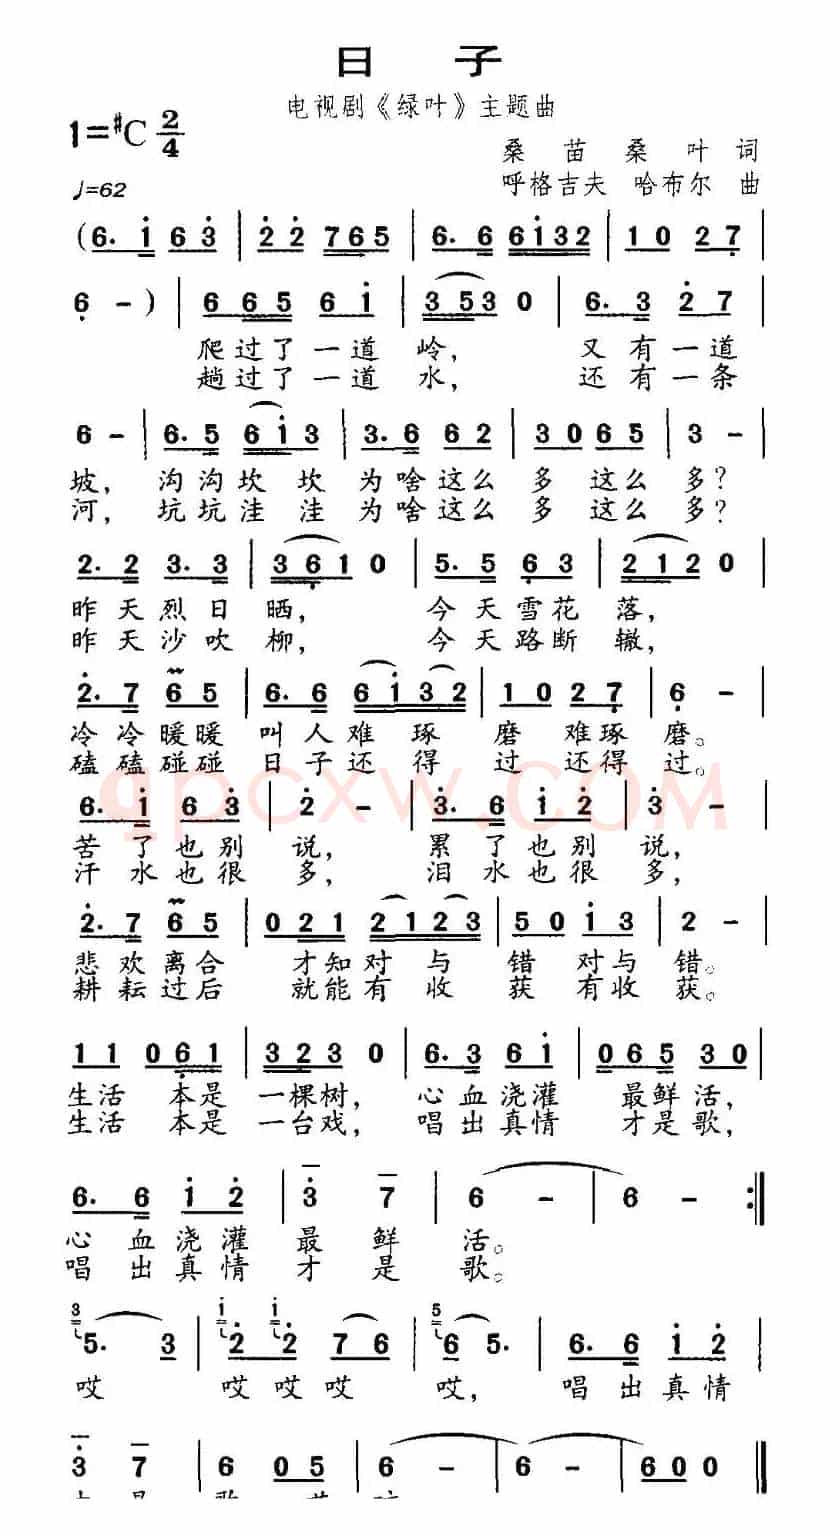 日 子
电视剧《绿叶》主题曲
1=#C 2/4
桑苗桑叶 词
♩=62
呼格吉夫 哈布尔 曲
(6. i 6 3 | 2 2 765 | 6. 6 6i32 | 10 27 |
6 - ) | 6 65 6 i | 3530 | 6. 3 27 |
爬过了一道 岭, 又有一道
趟过了一道 水, 还有一条
6 - | 6. 5 6i3 | 3. 6 62 | 3065 | 3 - |
坡, 沟沟坎坎 为啥这么 多 这么 多?
河, 坑坑洼洼 为啥这么 多 这么 多?
2. 2 3. 3 | 361 0 | 5. 5 63 | 2120 |
昨天烈日 晒, 今天雪花 落,
昨天沙吹 柳, 今天路断 辙,
2. 7 65 | 6. 6 6i32 | 10 27 | 6 - |
冷冷暖暖 叫人难 琢 磨 难琢 磨。
磕磕碰碰 日子还 得 过 还得 过。
qpcxw.com
6. i 63 | 2 - | 3. 6 i2 | 3 - |
苦了也别 说, 累了也别 说,
汗水也很 多, 泪水也很 多,
2. 7 65 | 021 2123 | 50 i3 | 2 - |
悲欢离合 才知对 与 错 对与 错。
耕耘过后 就能有 收 获 有收 获。
11 061 | 323 0 | 6. 3 6i | 065 30 |
生活 本是 一棵树, 心血浇灌 最鲜 活,
生活 本是 一台戏, 唱出真情 才是 歌,
6. 6 i2 | 3 7 | 6 - | 6 - :|
心血浇灌 最 鲜 活。
唱出真情 才 是 歌。
3 i i 5
5. 3 | 2 2 76 | 6 5. | 6. 6 i2 |
哎 哎哎哎 哎, 唱出真情
3 7 | 6 05 | 6 - | 6 - | 600 ||